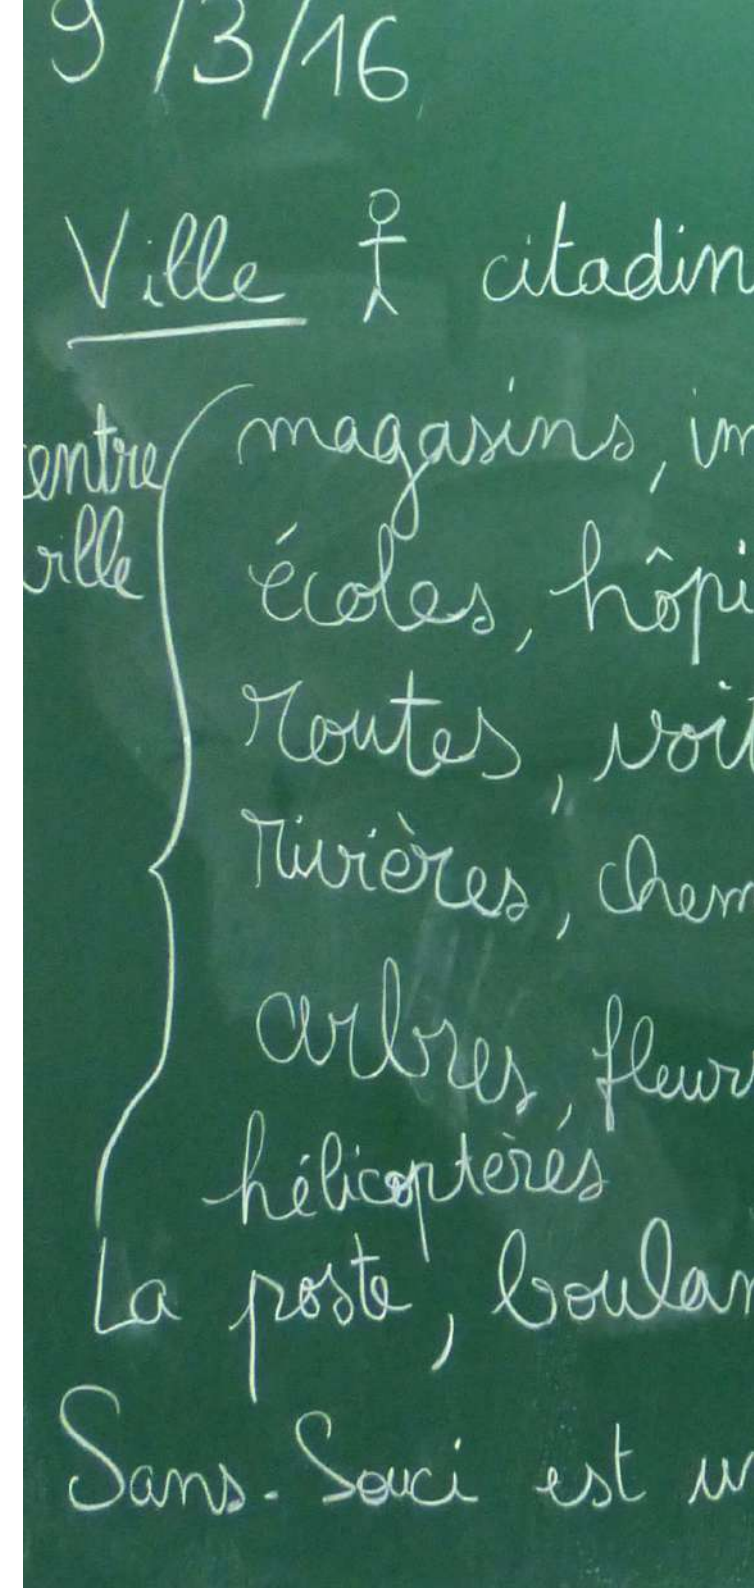 9/3/16
Ville citadin
entre
ville
magasins, im
écoles, hôpi
routes, voit
rivières, chem
arbres, fleurs
hélicoptères
La poste, boulan
Sans-Souci est un